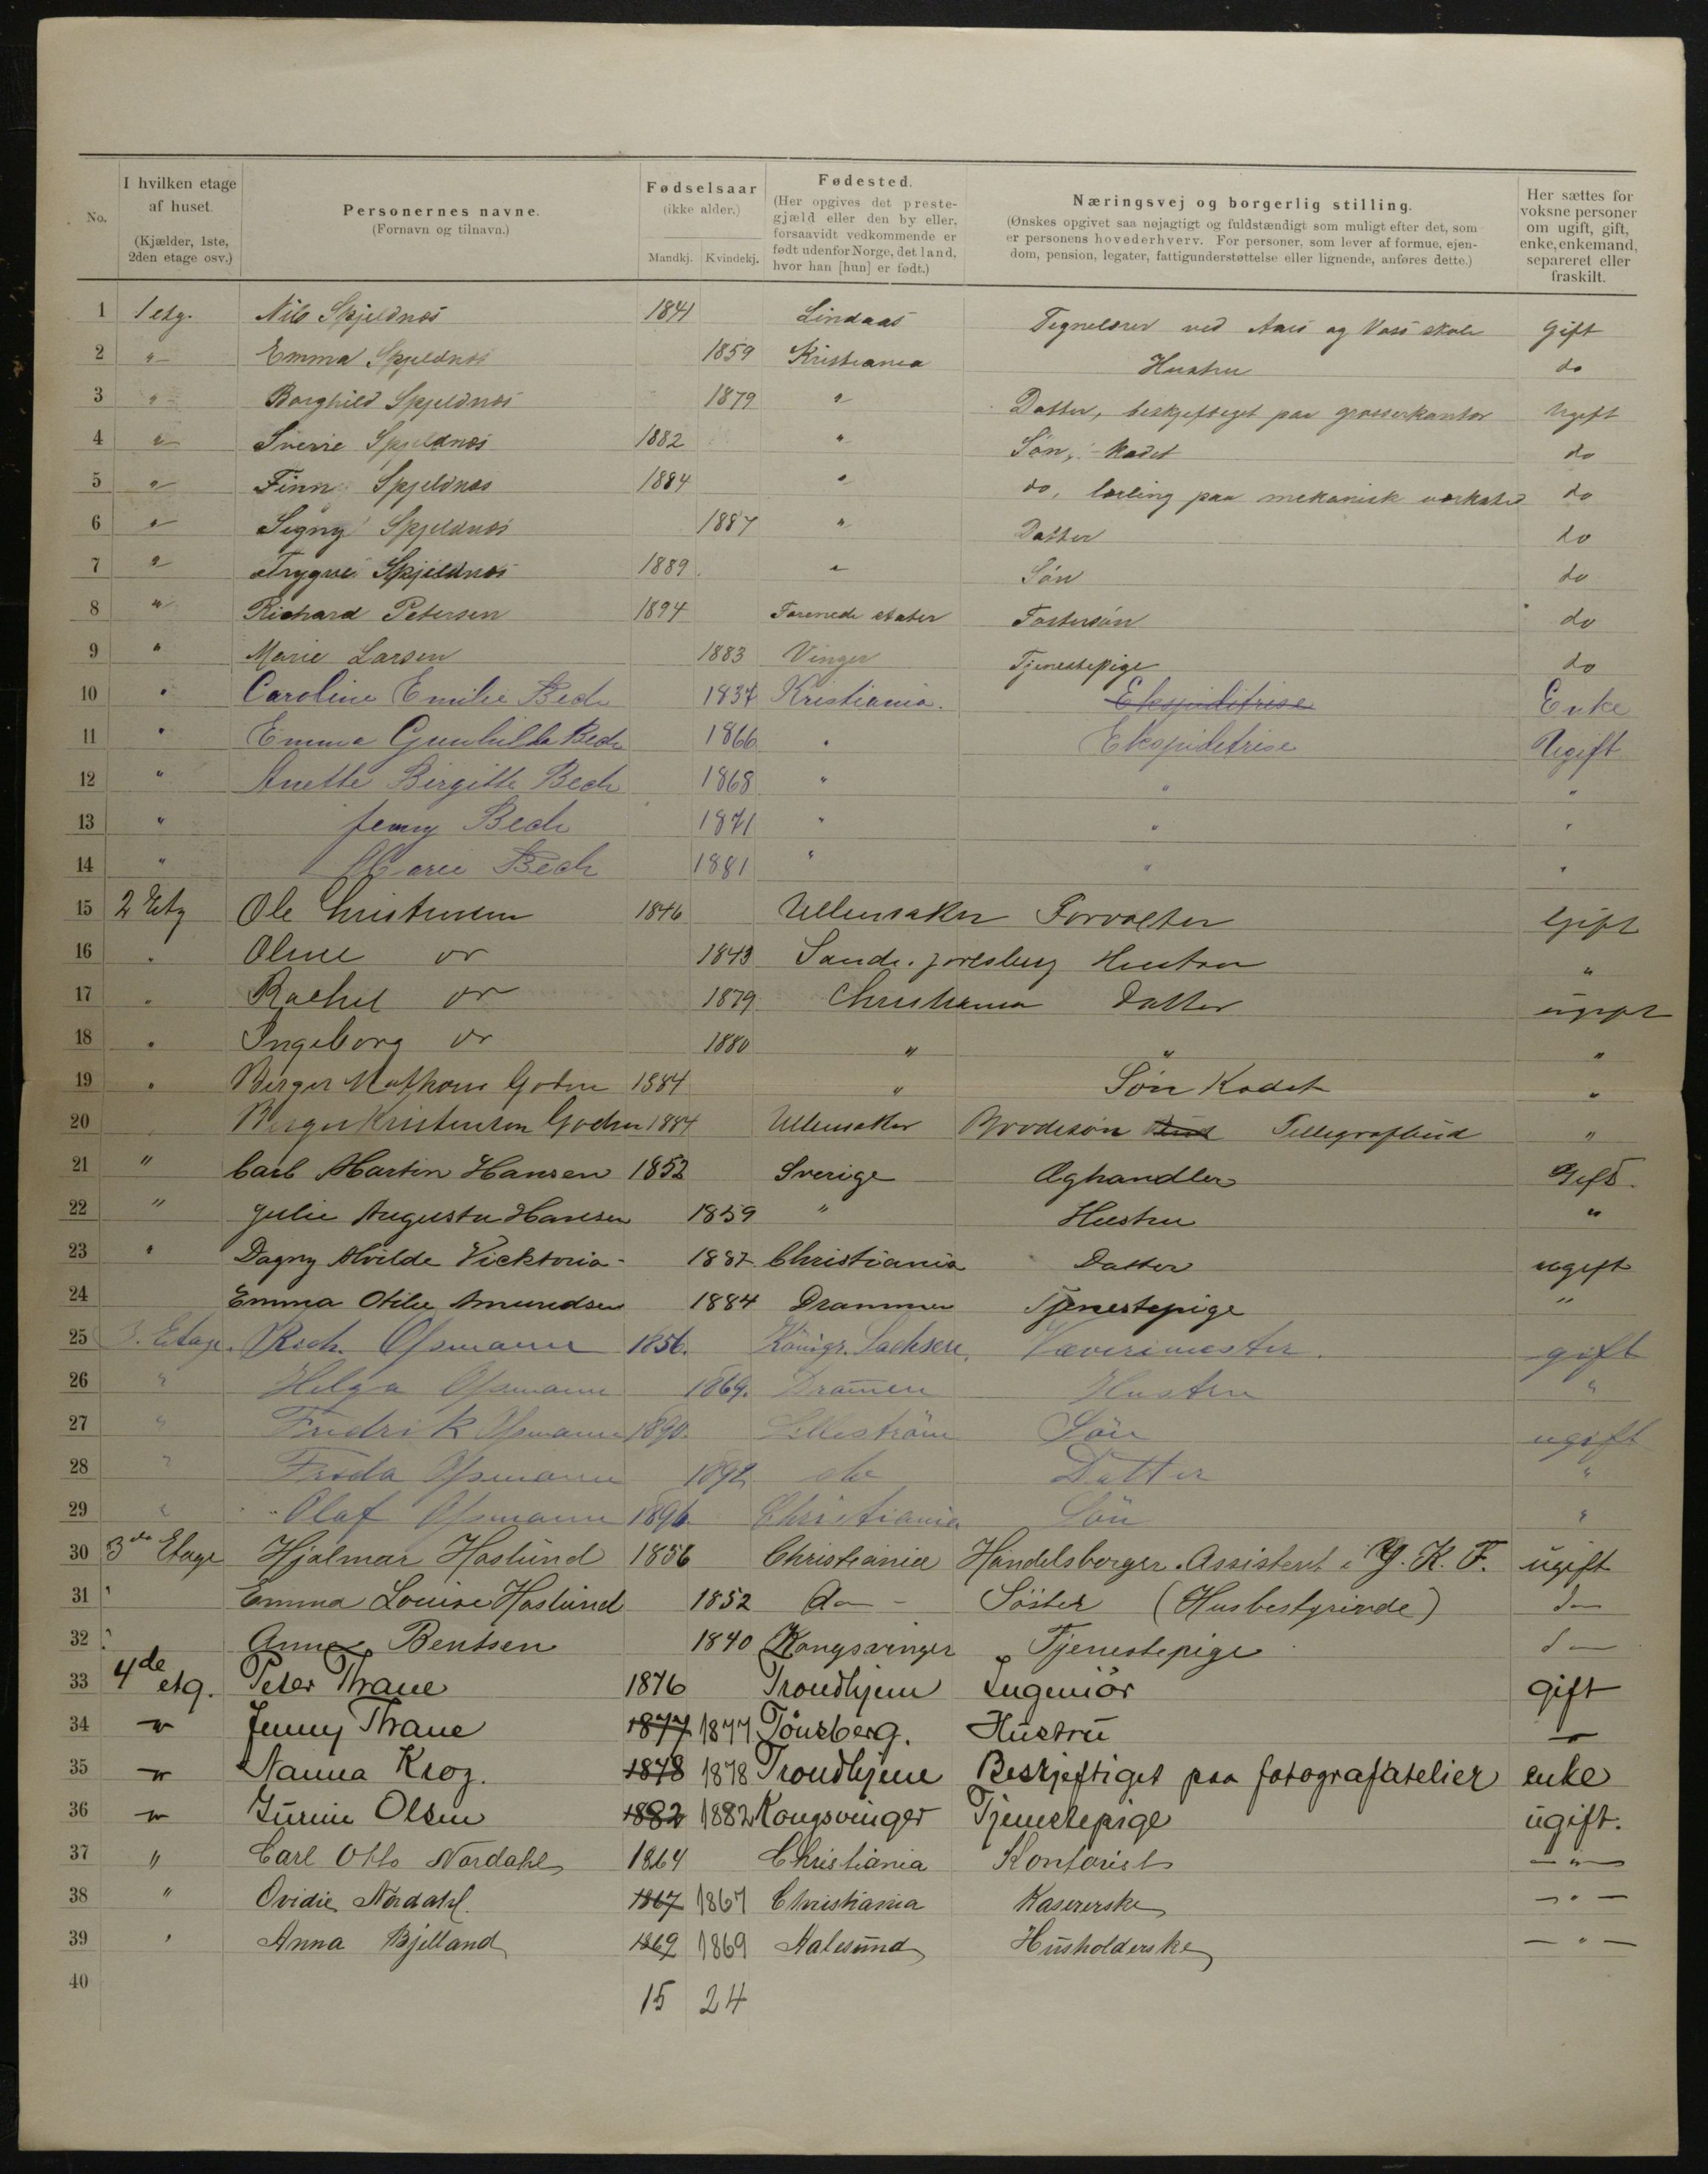 No.
I hvilken etage
af huset.
(Kjælder, 1ste,
2den etage osv.)
Personernes navne.
(Fornavn og tilnavn.)
Fødselsaar
(ikke alder.)
Mandkj. Kvindekj.
Fødested.
(Her opgives det preste-
gjæld eller den by eller,
forsaavidt vedkommende er
født udenfor Norge, det land,
hvor han [hun] er født.)
Næringsvej og borgerlig stilling.
(Ønskes opgivet saa nøjagtigt og fuldstændigt som muligt efter det, som
er personens hovederhverv. For personer, som lever af formue, ejen-
dom, pension, legater, fattigunderstøttelse eller lignende, anføres dette.)
Her sættes for
voksne personer
om ugift, gift,
enke, enkemand,
separeret eller
fraskilt.
1 1 etg. Nils Spjeldnæs 1841 Lindaas Tegnelærer ved Aars og Voss skole Gift
2 " Emma Spjeldnæs 1859 Kristiania Hustru do
3 " Borghild Spjeldnæs 1879 " Datter, beskjeftiget paa grosserkontor Ugift
4 " Sverre Spjeldnæs 1882 " Søn, Kadet do
5 " Finn Spjeldnæs 1884 " do, lærling paa mekanisk værksted do
6 " Signy Spjeldnæs 1887 " Datter do
7 " Trygve Spjeldnæs 1889 " Søn do
8 " Richard Petersen 1894 Forenede stater Fostersøn do
9 " Marie Larsen 1883 Vinger Tjenestepige do
10 " Caroline Emilie Bech 1837 Kristiania. Ekspeditrise Enke
11 " Emma Gunhilda Bech 1866 " Ekspeditrise Ugift
12 " Anette Birgitte Bech 1868 " " "
13 " Jenny Bech 1871 " " "
14 " Marie Bech 1881 " " "
15 2 Etg Ole Christensen 1846 Ullensaker Forvalter Gift
16 " Oline 1843 Sande. Jarlsberg Hustru "
17 " Rachel 1879 Christiania Datter ugift
18 " Ingeborg 1880 " " "
19 " Birger 1884 " Søn Kadet "
20 Birger Kristensen 1884 Ullensaker Brodersøn Tellegrafbud "
21 " Carl Martin Hansen 1852 Sverige Æghandler Gift.
22 " Julie Augusta Hansen 1859 " Hustru "
23 " Dagny Alvilde Vicktoria - 1887 Christiania Datter ugift
24 Emma Otilie Amundsen 1884 Drammen Tjenestepige "
25 3. Etage. Rich. Ossmann 1856. Königr. Sachsen, Væverimester. gift
26 " Helga Ossmann 1869. Dram̄en Hustru "
27 " Fredrik Ossmann 1890. Lilleström Sön ugift
28 " Frida Ossmann 1892 do Datter "
29 " Olaf Ossmann 1896 Christiania Sön "
30 3die Etage Hjalmar Haslund 1856 Christiania Handelsborger. Assistent i K. F. ugift
31 " Emma Louise Haslund 1852 do - Söster (Husbestyrinde) do
32 " Anne Bentsen 1840 Kongsvinger Tjenestepige do
33 4de etg. Peter Thrane 1876 Trondhjem Ingeniör gift
34 " Jenny Thrane 1877 1877 Tönsberg. Hustru "
35 " Nanna Krog. 1878 1878 Trondhjem Beskjeftiget paa fotografatelier enke
36 " Olsen 1882 1882 Kongsvinger Tjenestepige ugift.
37 " Carl Otto Nordahl 1864 Christiania Kontorist — " —
38 " Ovidie Nordahl. 1867 1867 Christiania Kasererske — " —
39 " Anna Bjelland 1869 1869 Aalesund Husholderske — " —
40 15 24